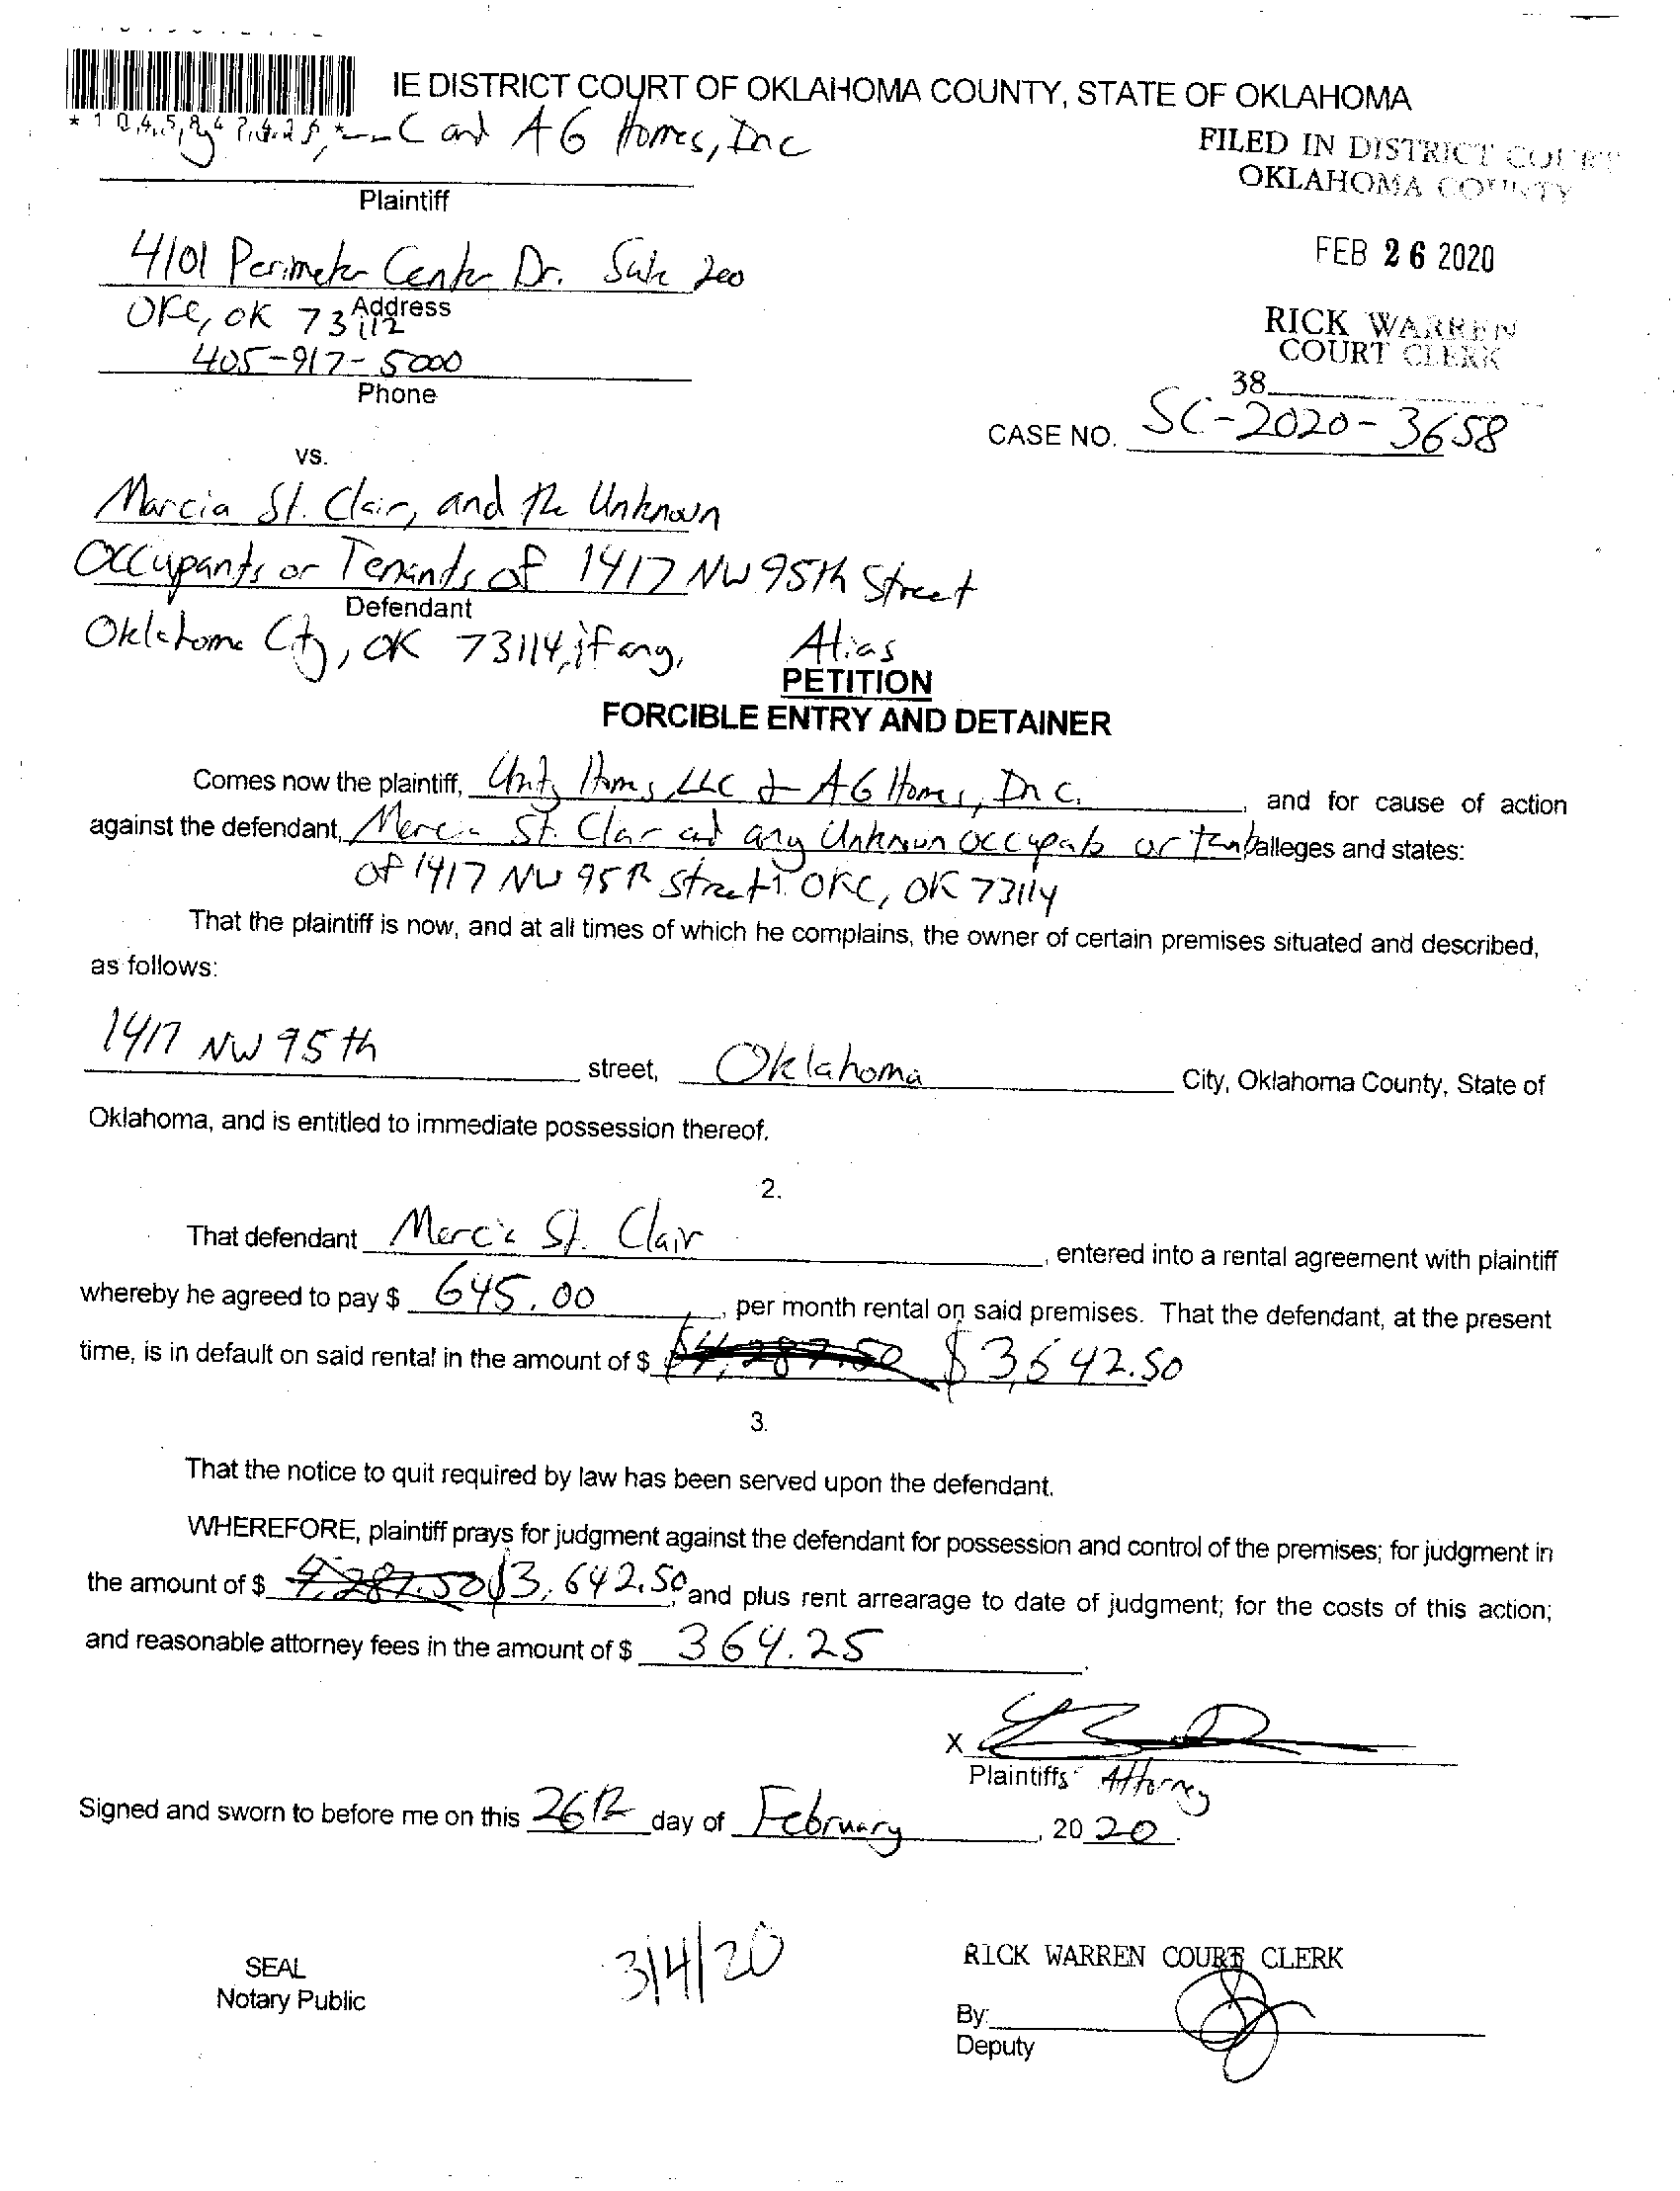 IE DISTRICT COURT OF OKLAHOMA COUNTY, STATE OF OKLAHOMA
C and AG Homes, Inc
FILED IN DISTRICT COURT
OKLAHOMA COUNTY
Plaintiff
4101 Perimeter Center Dr. Suite 200
FEB 26 2020
Address
OKC, OK 73112
RICK WARREN
COURT CLERK
405-917-5000
Phone
38
CASE NO. SC-2020-3658
vs.
Marcia St. Clair, and the Unknown
Occupants or Tenants of 1417 NW 95th Street
Defendant
Oklahoma City, OK 73114, if any,
Alias
PETITION
FORCIBLE ENTRY AND DETAINER
Comes now the plaintiff, Unity Homes, LLC & AG Homes, Inc. , and for cause of action
against the defendant, Marcia St. Clair and any Unknown occupants or tenants alleges and states:
of 1417 NW 95th street OKC, OK 73114
1.
That the plaintiff is now, and at all times of which he complains, the owner of certain premises situated and described,
as follows:
1417 NW 95th street, Oklahoma City, Oklahoma County, State of
Oklahoma, and is entitled to immediate possession thereof.
2.
That defendant Marcia St. Clair , entered into a rental agreement with plaintiff
whereby he agreed to pay $ 645.00 , per month rental on said premises. That the defendant, at the present
time, is in default on said rental in the amount of $ $4,287.50 $3,642.50
3.
That the notice to quit required by law has been served upon the defendant.
WHEREFORE, plaintiff prays for judgment against the defendant for possession and control of the premises; for judgment in
the amount of $ 4,287.50 $3,642.50, and plus rent arrearage to date of judgment; for the costs of this action;
and reasonable attorney fees in the amount of $ 364.25 .
X
Plaintiffs' Attorney
Signed and sworn to before me on this 26th day of February , 20 20 .
3/4/20
RICK WARREN COURT CLERK
SEAL
Notary Public
By:
Deputy